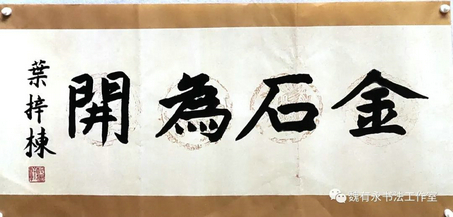 金石為開
葉梓棟
魏有永书法工作室